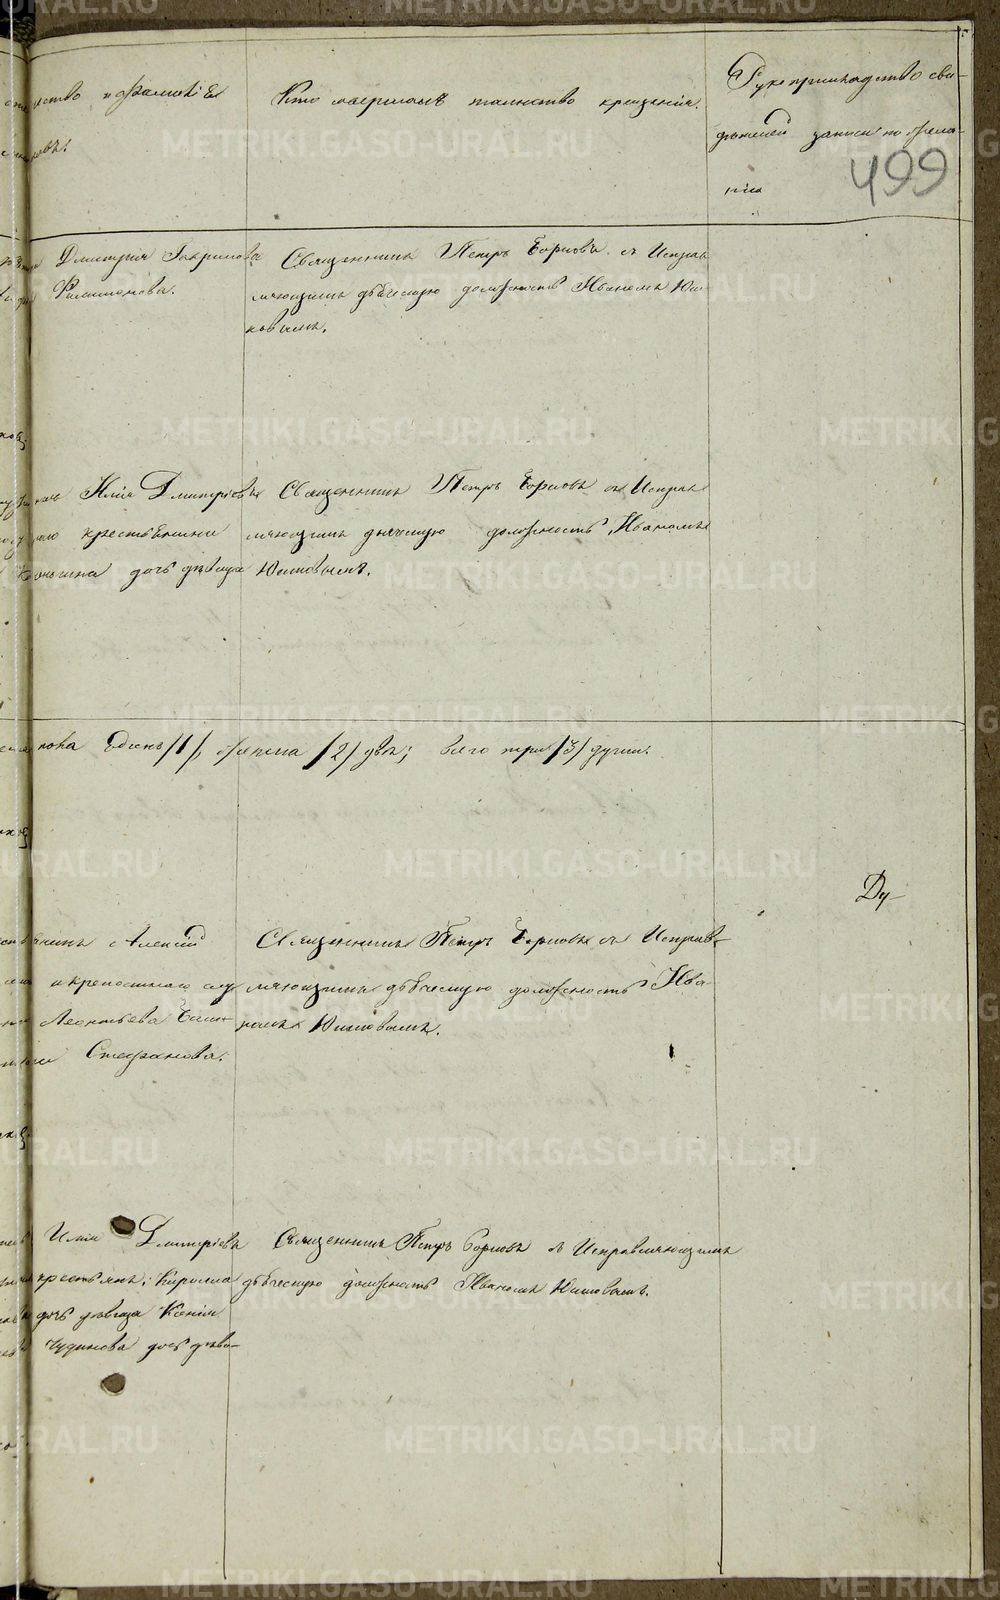 отчество и фамилiе
Кто совершалъ таинство крещенiя.
Рукоприкладство сви-
дѣтелей записи по жела-
нiю
499
Дмитрiя Гаврилова
Филимонова.
Священникъ Петръ Борисовъ съ Исправ
ляющимъ дьяческую должность Иваномъ
Илiя Дмитрiевъ
крестьянина
дочь дѣвица
Священникъ Петръ Борисовъ съ Исправ
ляющимъ дьяческую должность Иваномъ
пола Единъ /1/, женска /2/ два; всего три /3/ души.
Ду
Алексiй
Леонтьева
Стефанова.
Священникъ Петръ Борисовъ съ Исправ-
ляющимъ дьяческую должность Ива-
номъ
Илiя Дмитрiевъ
крестьянъ: Кирилла
дочь дѣвица Ксенiя
Чудинова дочь дѣви-
Священникъ Петръ Борисовъ съ Исправляющимъ
дьяческую должность Иваномъ
METRIKI.GASO-URAL.RU